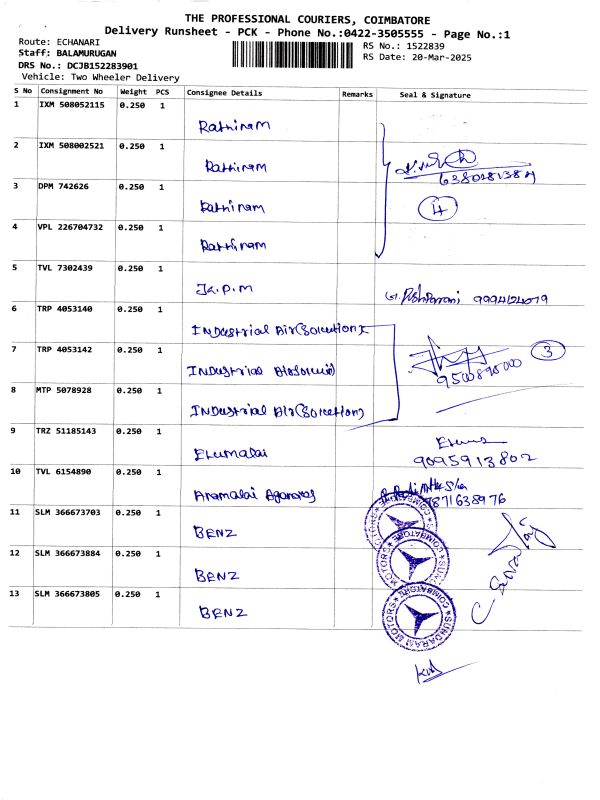 THE PROFESSIONAL COURIERS, COIMBATORE
Delivery Runsheet - PCK - Phone No.:0422-3505555 - Page No.:1
Route: ECHANARI
RS No.: 1522839
Staff: BALAMURUGAN
RS Date: 20-Mar-2025
DRS No.: DCJB152283901
Vehicle: Two Wheeler Delivery
S No Consignment No Weight PCS Consignee Details Remarks Seal & Signature
1 IXM 508052115 0.250 1
Rathinam
2 IXM 508002521 0.250 1
Rathinam
3 DPM 742626 0.250 1
Rathinam
4
4 VPL 226704732 0.250 1
Rathinam
5 TVL 7302439 0.250 1
J.K.P.M
6 TRP 4053140 0.250 1
Industrial Air (Solution)
7 TRP 4053142 0.250 1
3
Industrial
8 MTP 5078928 0.250 1
Industrial Air (Solution)
9 TRZ 51185143 0.250 1
Elumalai
9095913802
10 TVL 6154890 0.250 1
9871638976
11 SLM 366673703 0.250 1
BENZ
12 SLM 366673884 0.250 1
BENZ
13 SLM 366673805 0.250 1
BENZ
SUNDARAM MOTORS
COIMBATORE